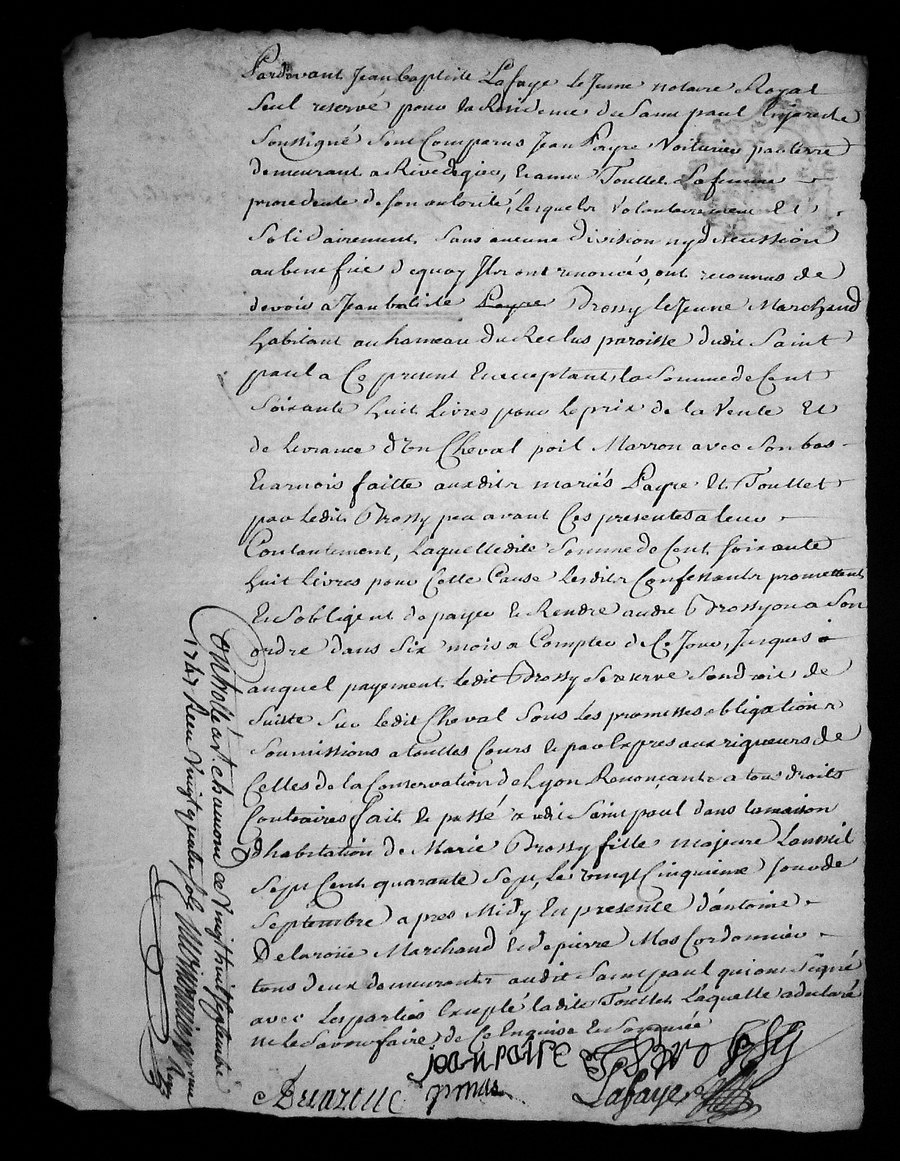 Pardevant Jean baptiste Lafaye le Jeune notaire Royal
Seul reservé pour la Residence de Saint paul En Jareste
Soussigné Sont Comparus Jean Payre Voiturier par terre
demeurant a Rivedegier, Et anne Toullet Sa femme
procedente de Son autorité, Lesquels Volontairement Et
Solidairement Sans aucune division ny discussion
au benefice dequoy Ils ont renoncés, ont reconnus de
devoir a Jean batiste Payre Brossy le Jeune Marchand
habitant au hameau du Reclus paroisse dudit Saint
paul a Ce present Et acceptant, la Somme de Cent
Soixante huit Livres pour le prix de la Vente Et
de Livrance d'Un Cheval poil Marron avec Son bas
Et arnois faitte auxdits mariés Payre Et Toullet
par ledit Brossy peu avant Ces presentes a leur
Contantement, Laquelle ditte Somme de Cent Soixante
huit Livres pour Cette Cause Lesdits Confessants promettent
Et S'obligent de payer Et Rendre audit Brossy ou a Son
ordre dans Six mois a Compter de Ce Jour, Jusques a
auquel payement ledit Brossy Se reserve Son droit de
Suitte Sur ledit Cheval Sous Les promesses obligations
Soumissions a touttes Cours Et par Expres aux rigueurs de
Celles de la Conservation de Lyon Renonçants a tous droits
Contraires fait Et passé audit Saint paul dans la maison
d'habitation de Marie Brossy fille majeure L'an mil
Sept Cent quarante Sept, Le vingt Cinquieme Jour de
Septembre apres Midy En presence d'antoine
Delaroüe Marchand Et de pierre Mas Cordonnier
tous deux demeurants audit Saint paul qui ont Signé
avec Les parties Excepté ladite Toullet Laquelle a declaré
ne le Savoir faire, de Ce Enquise Et Sommée
jean paire J B Brossy
Delaroue p mas Lafaye
Controllé a St chaumond ce Vingt huit Septembre
1747 Receu Vingt quatre sols